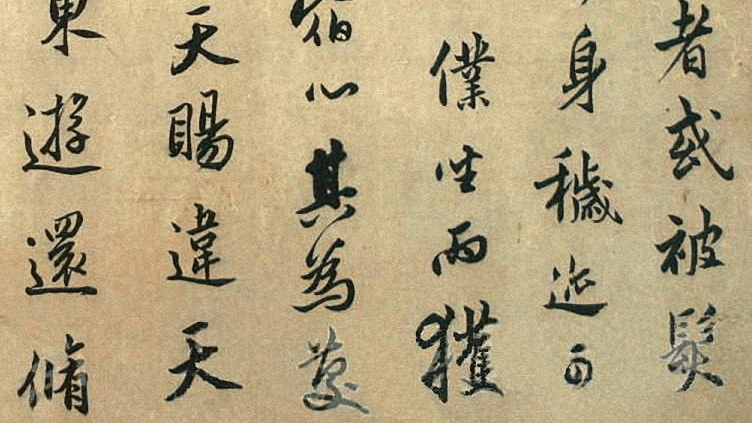 者或被髮
身穢迹可
僕坐而獲
宿心其為慶
天賜違天
東遊還脩